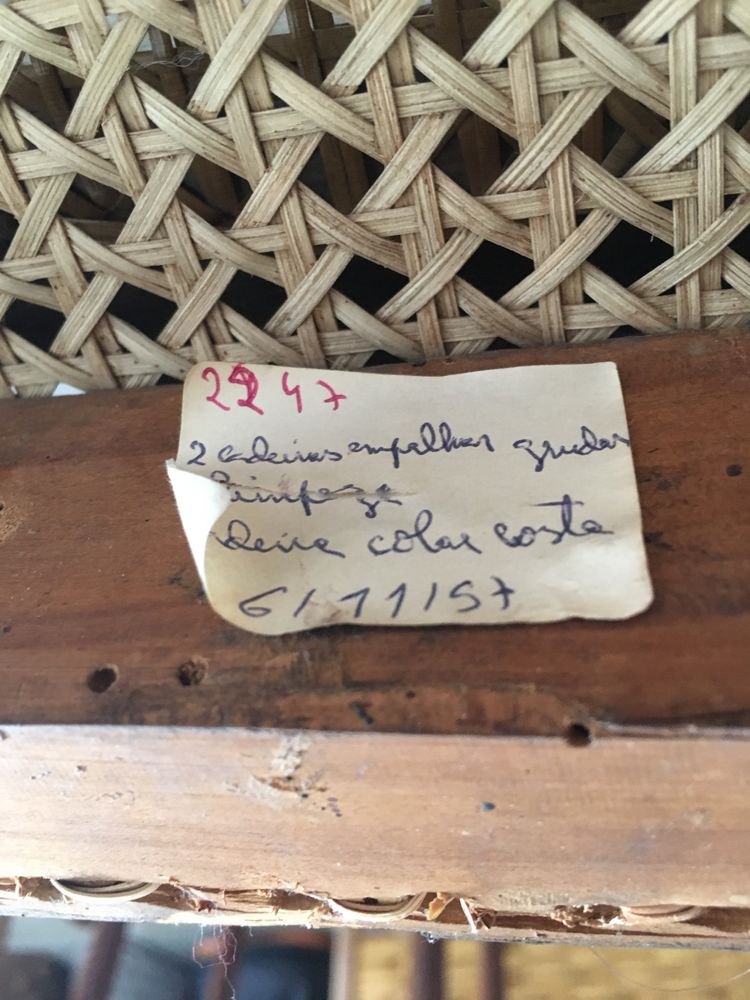 2247
2 cadeiras empalhar grudar
limpeza
deira colar costa
6/11/57